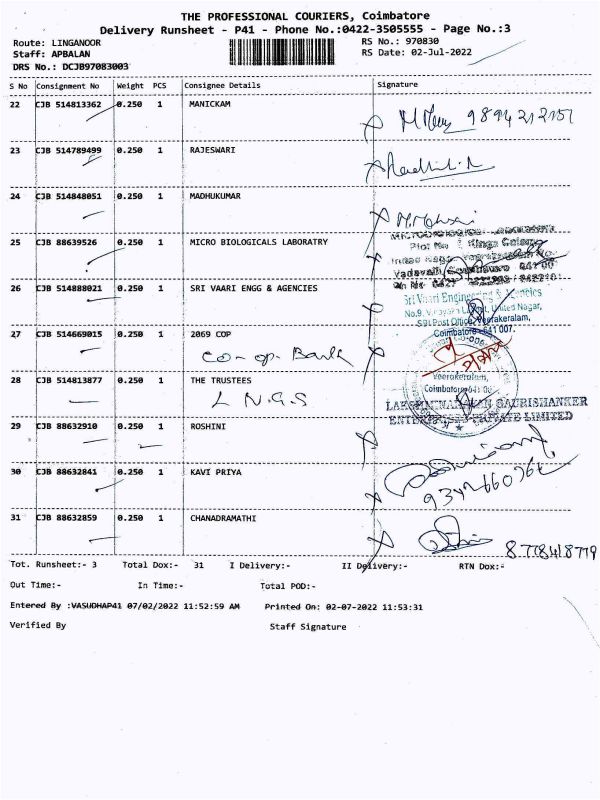 THE PROFESSIONAL COURIERS, Coimbatore
Delivery Runsheet - P41 - Phone No.:0422-3505555 - Page No.:3
Route: LINGANOOR RS No.: 970830
Staff: APBALAN RS Date: 02-Jul-2022
DRS No.: DCJB97083003
S No Consignment No Weight PCS Consignee Details Signature
22 CJB 514813362 0.250 1 MANICKAM
23 CJB 514789499 0.250 1 RAJESWARI
24 CJB 514848051 0.250 1 MADHUKUMAR
25 CJB 88639526 0.250 1 MICRO BIOLOGICALS LABORATRY
Plot No Kings Colony
Vadavalli
26 CJB 514888021 0.250 1 SRI VAARI ENGG & AGENCIES
Sri Vaari Engineering & Agencies
No.9, United Nagar,
SBI Post Office, Veerakeralam,
Coimbatore - 641 007.
27 CJB 514669015 0.250 1 2069 COP
Co-op. Bank
28 CJB 514813877 0.250 1 THE TRUSTEES
L N.G.S
Veerakeralam,
Coimbatore
LAKSHMI NARAYAN GAURISHANKER
ENTERPRISES PRIVATE LIMITED
29 CJB 88632910 0.250 1 ROSHINI
30 CJB 88632841 0.250 1 KAVI PRIYA
31 CJB 88632859 0.250 1 CHANADRAMATHI
Tot. Runsheet:- 3 Total Dox:- 31 I Delivery:- II Delivery:- RTN Dox:-
Out Time:- In Time:- Total POD:-
Entered By :VASUDHAP41 07/02/2022 11:52:59 AM Printed On: 02-07-2022 11:53:31
Verified By Staff Signature